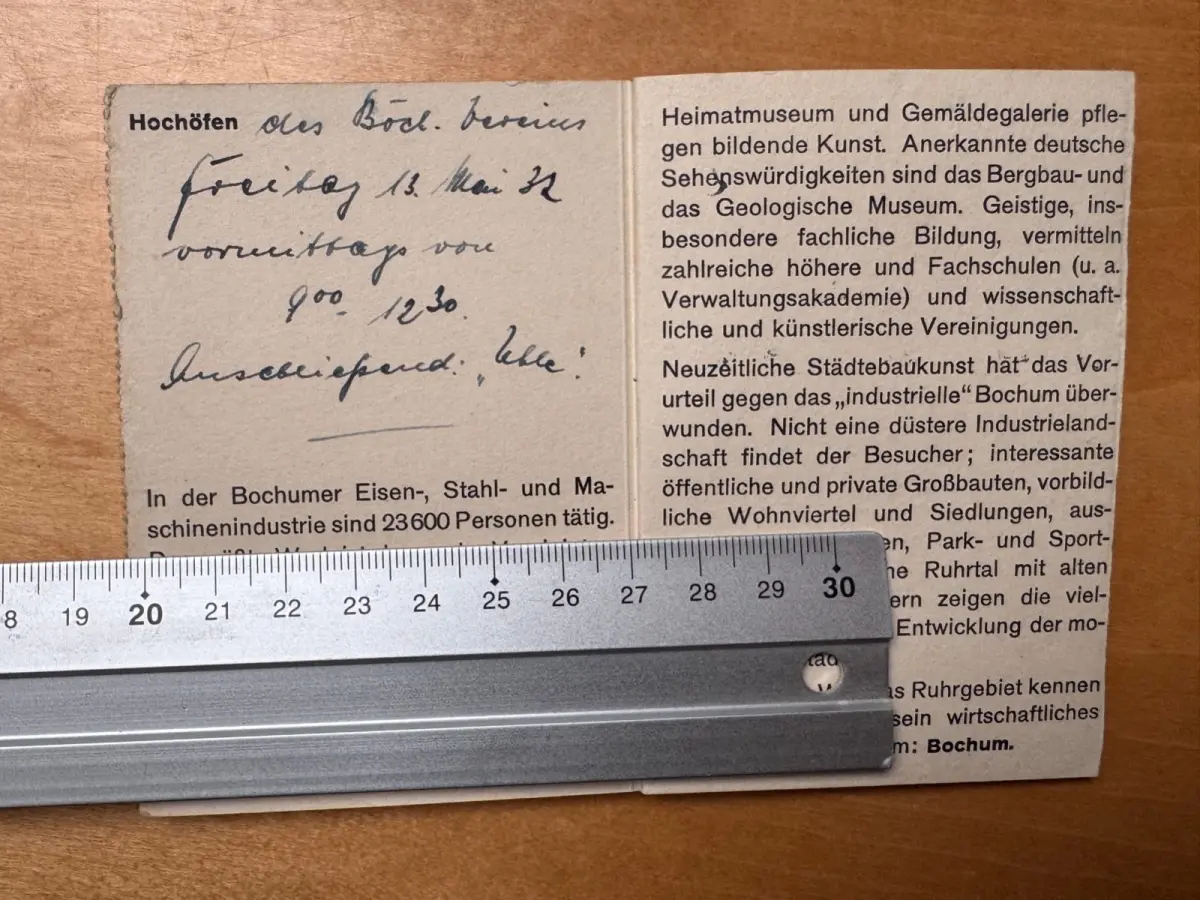 Hochöfen des Boch. Vereins
Freitag 13. Mai 32
vormittags von
9⁰⁰ - 12³⁰.
Anschließend:
In der Bochumer Eisen-, Stahl- und Ma-
schinenindustrie sind 23600 Personen tätig.
Heimatmuseum und Gemäldegalerie pfle-
gen bildende Kunst. Anerkannte deutsche
Sehenswürdigkeiten sind das Bergbau- und
das Geologische Museum. Geistige, ins-
besondere fachliche Bildung, vermitteln
zahlreiche höhere und Fachschulen (u. a.
Verwaltungsakademie) und wissenschaft-
liche und künstlerische Vereinigungen.
Neuzeitliche Städtebaukunst hat das Vor-
urteil gegen das „industrielle“ Bochum über-
wunden. Nicht eine düstere Industrieland-
schaft findet der Besucher; interessante
öffentliche und private Großbauten, vorbild-
liche Wohnviertel und Siedlungen, aus-
en, Park- und Sport-
ne Ruhrtal mit alten
ern zeigen die viel-
Entwicklung der mo-
as Ruhrgebiet kennen
sein wirtschaftliches
m: Bochum.
8 19 20 21 22 23 24 25 26 27 28 29 30